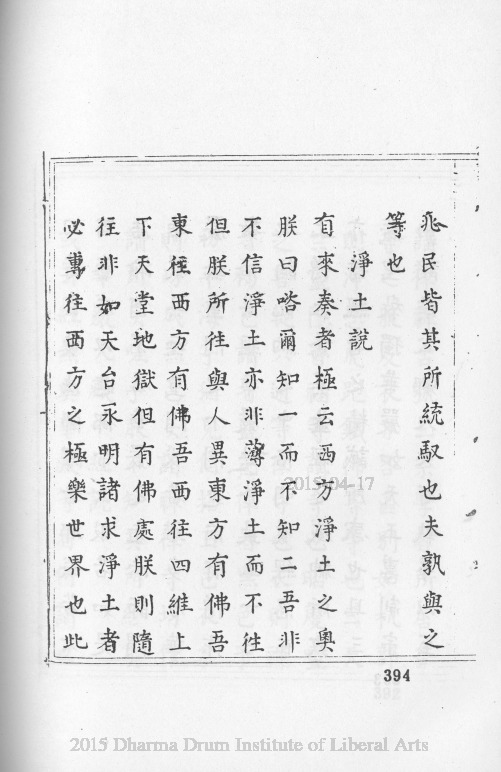 兆民皆其所統馭也夫孰與之
等也
淨土說
有來奏者極云西方淨土之奧
朕曰咯爾知一而不知二吾非
不信淨土亦非薄淨土而不往
但朕所往與人異東方有佛吾
東徃西方有佛吾西往四維上
下天堂地獄但有佛處朕則隨
往非如天台永明諸求淨土者
必專往西方之極樂世界也此
2012-04-17
394
2015 Dharma Drum Institute of Liberal Arts